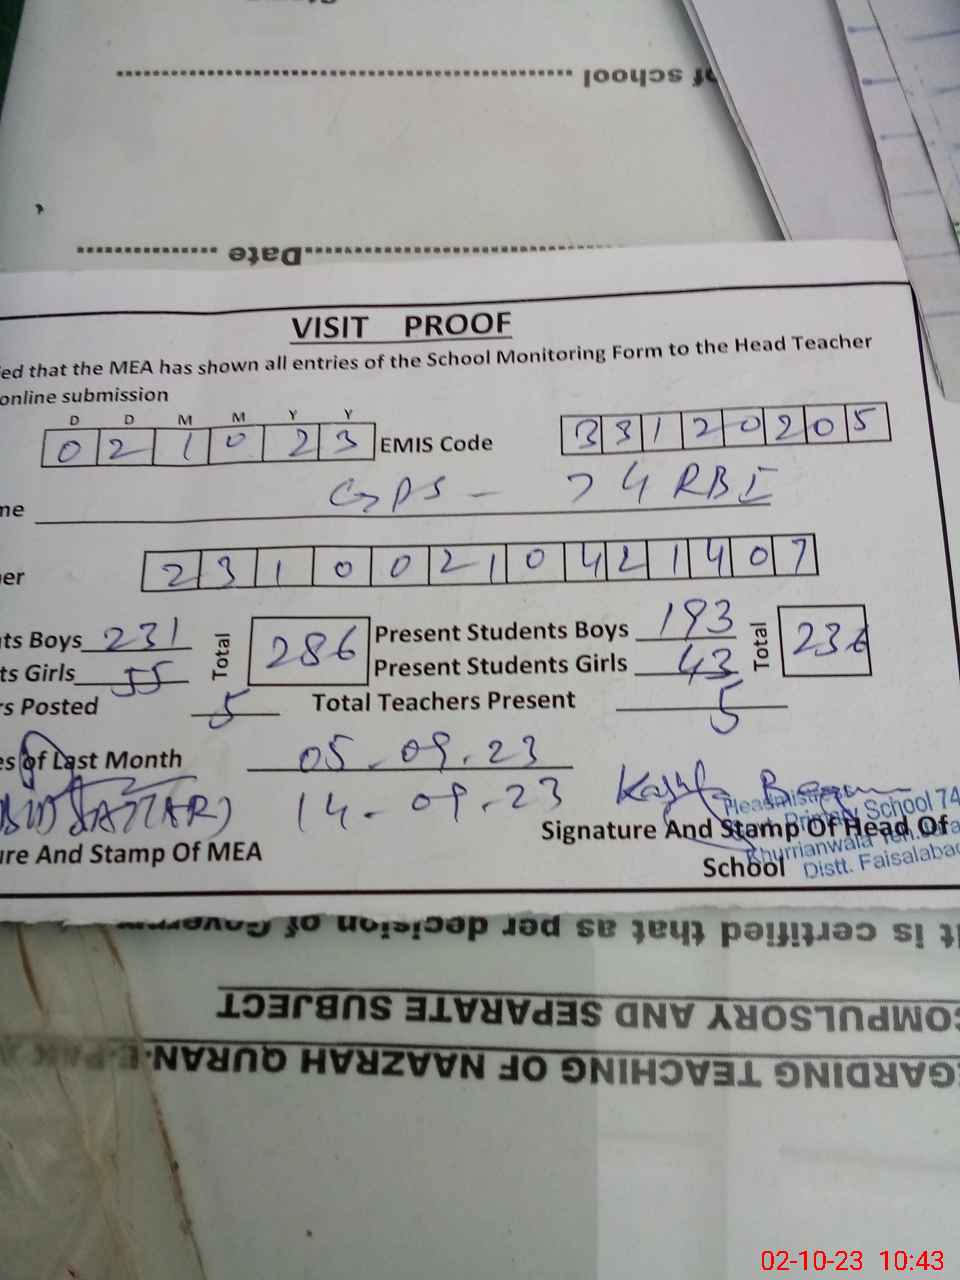 of school
Date
VISIT PROOF
ied that the MEA has shown all entries of the School Monitoring Form to the Head Teacher
online submission
D D M M Y Y
0 2 1 0 2 3 EMIS Code 3 3 1 2 0 2 0 5
me GPS - 74 RB I
er 2 3 1 0 0 2 1 0 4 2 1 4 0 7
ts Boys 231 Total 286 Present Students Boys 193 Total 236
ts Girls 55 Present Students Girls 43
rs Posted 5 Total Teachers Present 5
es of Last Month 05-09.23
14-09.23
Signature And Stamp Of Head Of
School
ure And Stamp Of MEA
School 74
Khurrianwala
Distt. Faisalabad
It is certified that as per decision of
COMPULSORY AND SEPARATE SUBJECT
GARDING TEACHING OF NAAZRAH QURAN-E-PAK
02-10-23 10:43